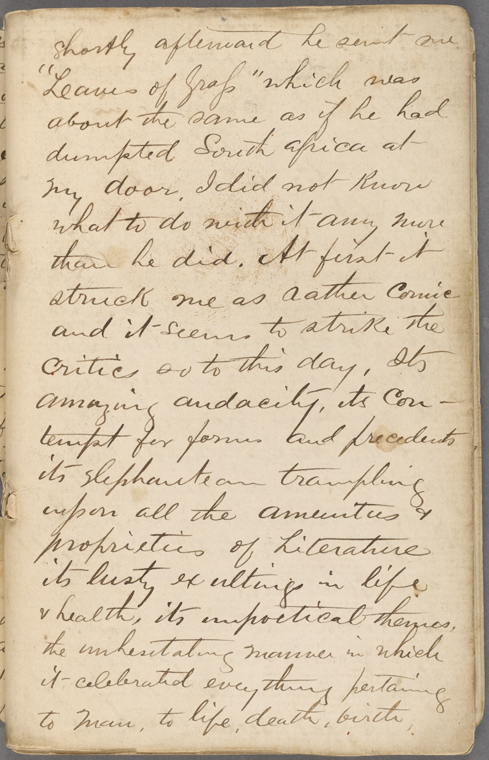 shortly afterward he sent me
"Leaves of Grass" which was
about the same as if he had
dumpted South africa at
my door, I did not know
what to do with it any more
than he did. At first it
struck me as rather comic
and it seems to strike the
critics so to this day. Its
amazing audacity, its con-
tempt for forms and precedents,
its elephantean trampling
upon all the amenities &
proprieties of Literature
its lusty exultings in life
& health, its unpoetical themes,
the unhesitating manner in which
it celebrated everything pertaining
to man, to life, death, birth,